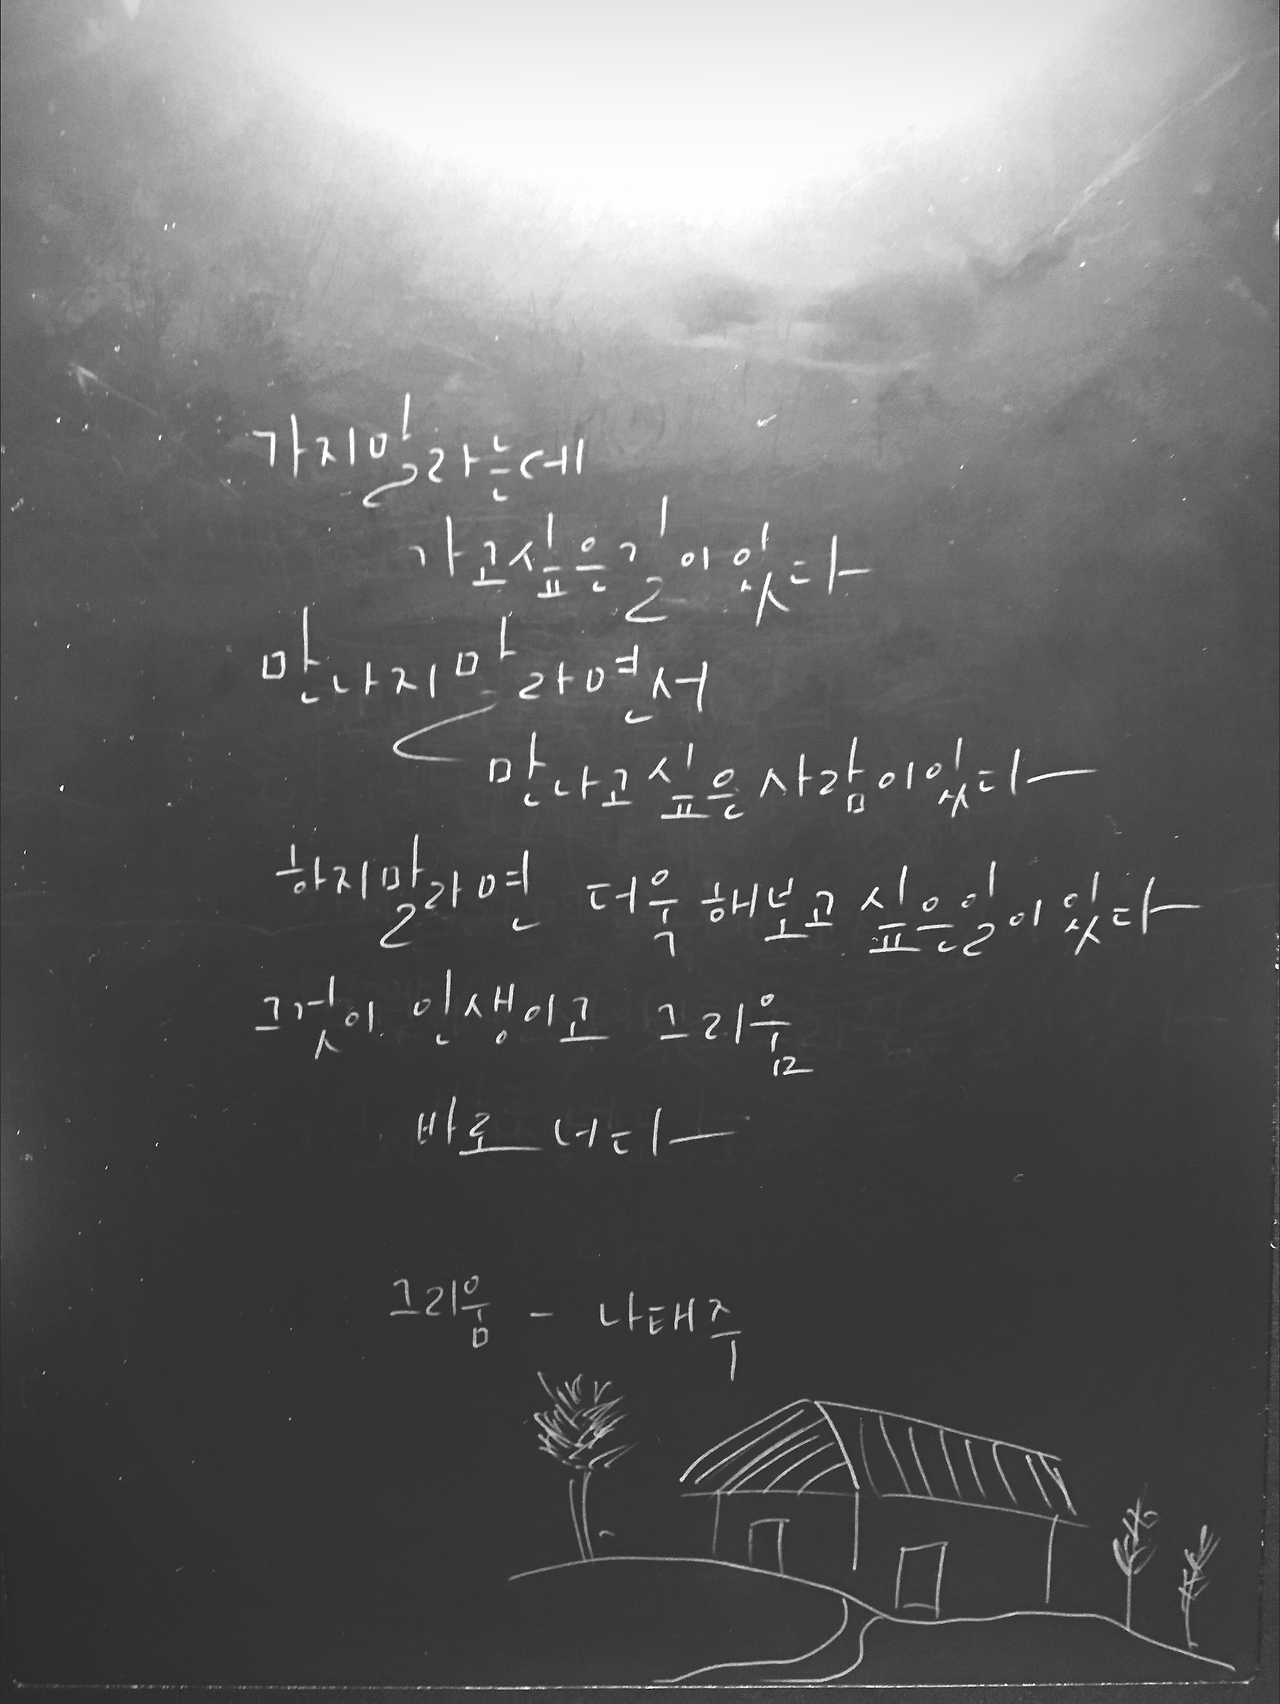 가지말라는데
가고싶은길이있다
만나지말라면서
만나고싶은사람이있다
하지말라면 더욱 해보고 싶은일이 있다
그것이 인생이고 그리움
바로 너다
그리움 - 나태주